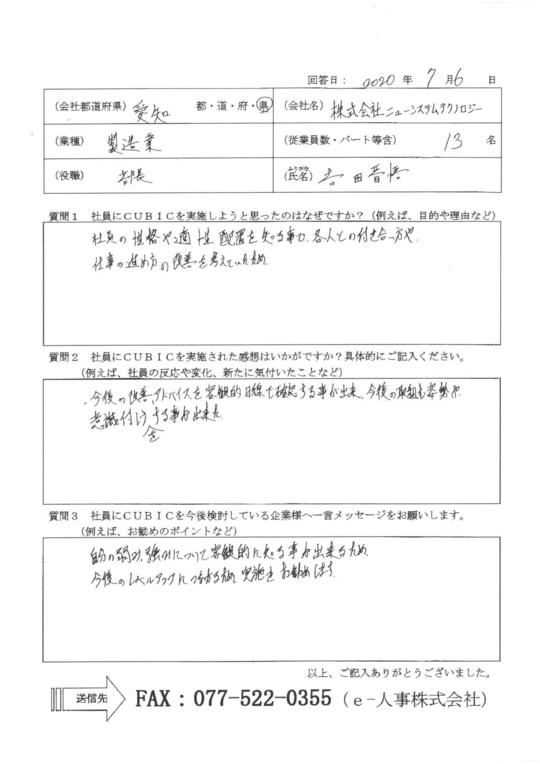 回答日： 2020 年 7 月 6 日
（会社都道府県） 愛知 都・道・府・県 （会社名） 株式会社ニューシステムテクノロジー
（業種） 製造業 （従業員数・パート等含） 13 名
（役職） 部長 （氏名） 吉田晋悟
質問１ 社員にＣＵＢＩＣを実施しようと思ったのはなぜですか？（例えば、目的や理由など）
社員の性格や適性配置を知る事で、各人との付き合い方や、
仕事の進め方の改善を考えていたため
質問２ 社員にＣＵＢＩＣを実施された感想はいかがですか？具体的にご記入ください。
（例えば、社員の反応や変化、新たに気付いたことなど）
今後の改善、アドバイスを客観的目線で確認する事が出来、今後の取組む姿勢や
意識付けをする事が出来た
質問３ 社員にＣＵＢＩＣを今後検討している企業様へ一言メッセージをお願いします。
（例えば、お勧めのポイントなど）
自分の弱み、強みについて客観的に知る事が出来るため
今後のレベルアップにつながる為、実施をお勧めします
以上、ご記入ありがとうございました。
送信先 FAX：077-522-0355（ｅ−人事株式会社）